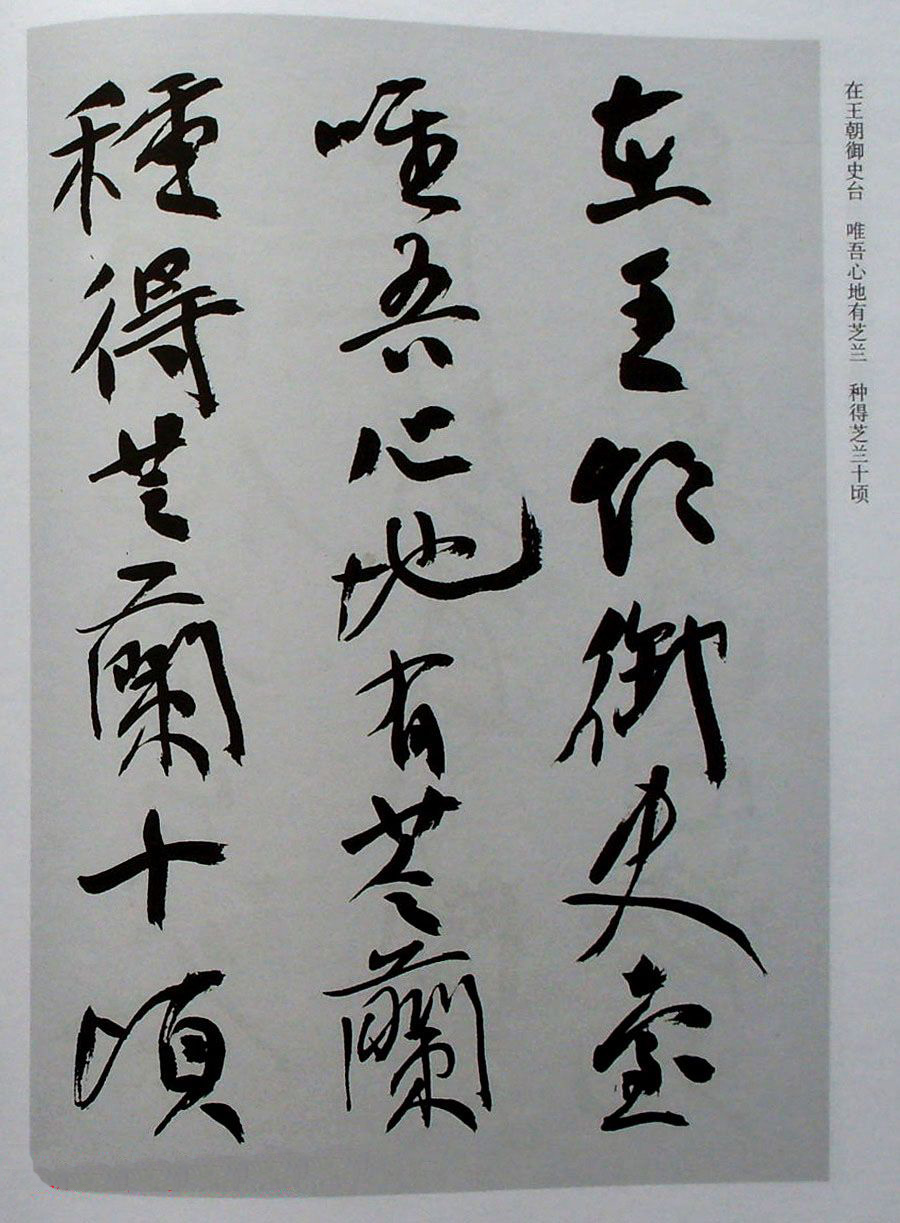 在王朝御史台　唯吾心地有芝兰　种得芝兰十顷
在王朝御史臺
唯吾心地有芝蘭
種得芝蘭十頃